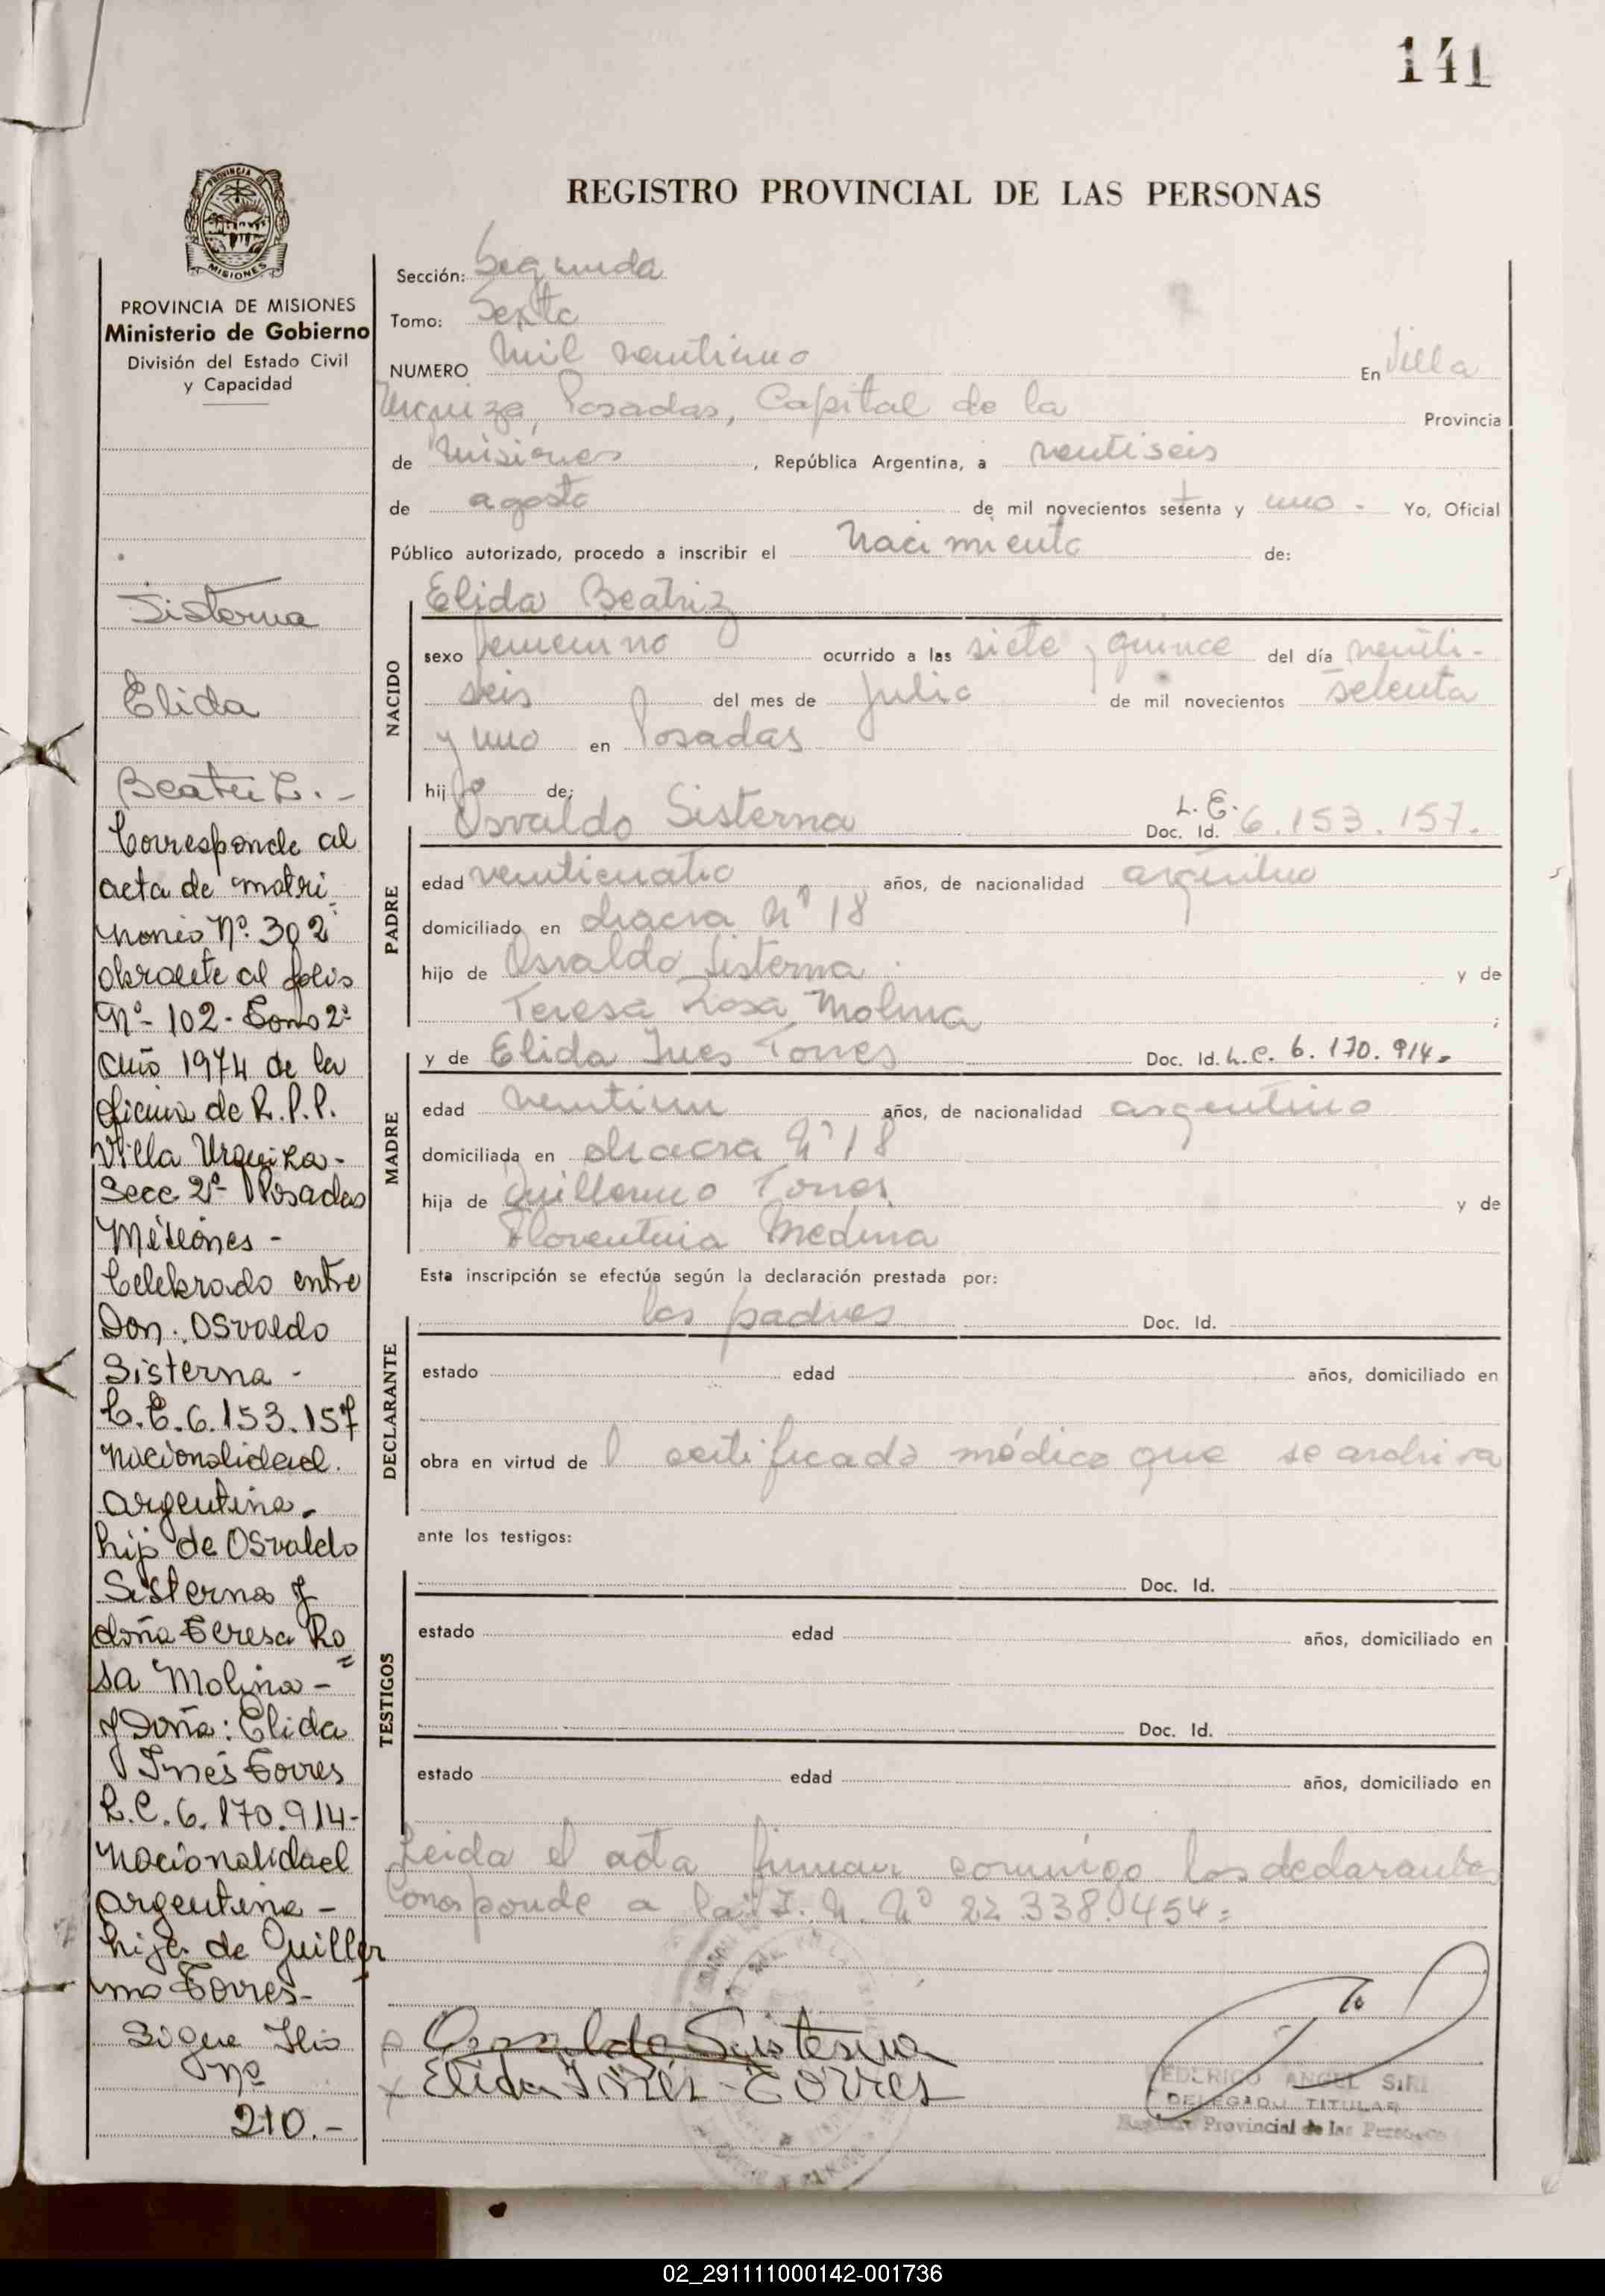 141
PROVINCIA DE MISIONES
REGISTRO PROVINCIAL DE LAS PERSONAS
PROVINCIA DE MISIONES
Ministerio de Gobierno
División del Estado Civil
y Capacidad
Sisterna
Elida
Beatriz.-
Corresponde al
acta de matri
monio Nº. 302
obrante al folio
Nº- 102- Tomo 2º
año 1974 de la
oficina de R.P.P.
Villa Urquiza-
Secc 2ª Posadas
Misiones-
Celebrado entre
Don: Osvaldo
Sisterna-
L.E. 6.153.157
nacionalidad
argentina-
hijo de Osvaldo
Sisterna y
doña Teresa Ro=
sa Molina-
y Doña: Elida
Inés Torres
L.C. 6.170.914-
nacionalidad
argentina-
hija de Guiller
mo Torres-
Sigue flio
Nº
210.-
Sección: Segunda
Tomo: Sexto
NUMERO mil ventiuno En Villa
Urquiza, Posadas, Capital de la Provincia
de Misiones, República Argentina, a ventiseis
de agosto de mil novecientos setenta y uno - Yo, Oficial
Público autorizado, procedo a inscribir el Nacimiento de:
NACIDO
Elida Beatriz
sexo femenino ocurrido a las siete y quince del día ventiseis del mes de julio de mil novecientos setenta
y uno en Posadas
hija de:
PADRE
Osvaldo Sisterna L.E. Doc. Id. 6.153.157.
edad venticuatro años, de nacionalidad argentino
domiciliado en chacra Nº 18
hijo de Osvaldo Sisterna y de
Teresa Rosa Molina ;
MADRE
y de Elida Ines Torres Doc. Id. L.C. 6.170.914-
edad ventiun años, de nacionalidad argentino
domiciliada en chacra Nº 18
hija de Guillermo Torres y de
Florentina Medina
Esta inscripción se efectúa según la declaración prestada por:
DECLARANTE
los padres Doc. Id.
estado edad años, domiciliado en
obra en virtud de l certificado médico que se archiva
ante los testigos:
TESTIGOS
Doc. Id.
estado edad años, domiciliado en
Doc. Id.
estado edad años, domiciliado en
Leida el acta firman conmigo los declarantes
Corresponde a la I.N. Nº 22.338.454=
Osvaldo Sisterna
Elida Inés Torres
FEDERICO ANGEL SIRI
DELEGADO TITULAR
Registro Provincial de las Personas
02_291111000142-001736